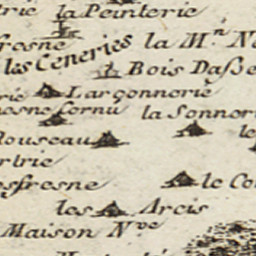 trie la Peinterie
fresne
les Ceneries la M.n
Bois Dasse
rie Larçonnerie
esne Cornu la Sonner
Rouseau le
rtrie
esfresne le Co
les Arcis
Maison Nve